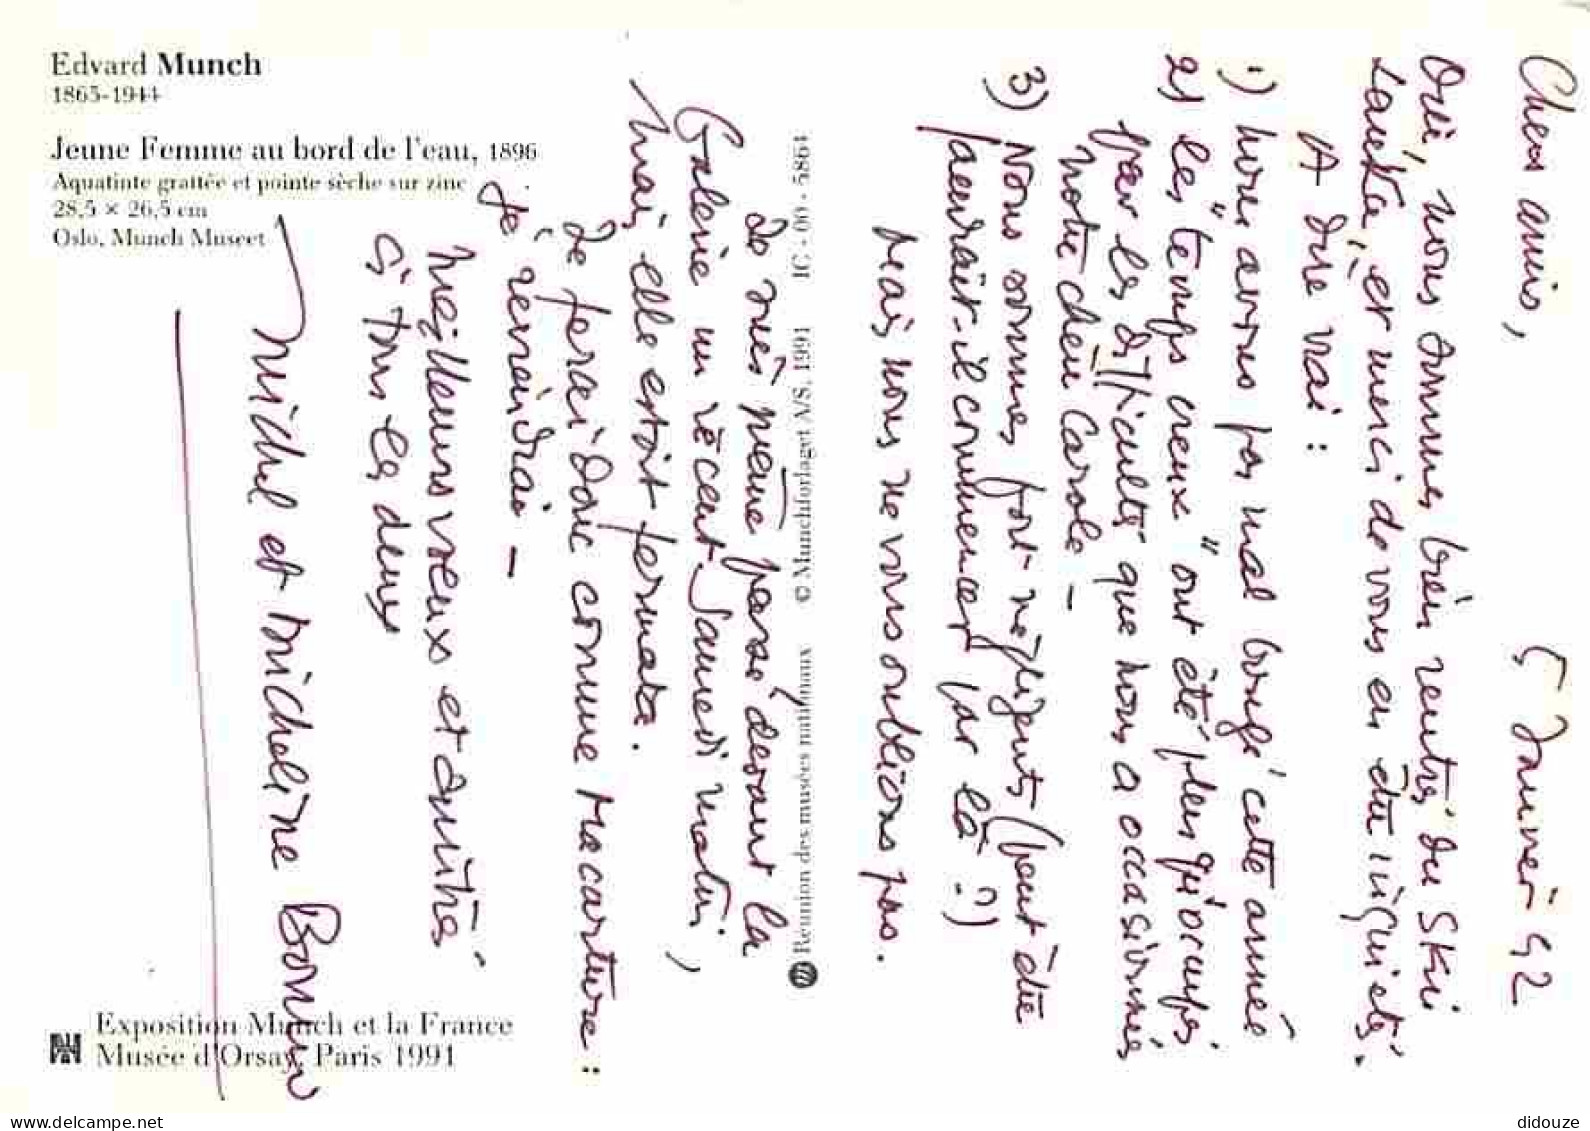 Edvard Munch
1863-1944
Jeune Femme au bord de l'eau, 1896
Aquatinte grattée et pointe sèche sur zinc
28,5 × 26,5 cm
Oslo, Munch Museet
Réunion des musées nationaux © Munchforlaget A/S, 1991 IC - 00 - 5864
Exposition Munch et la France
Musée d'Orsay, Paris 1991
5 Janvier 92
Chers amis,
Oui, nous sommes bien rentrés du Ski
et merci de vous en être inquiétés.
A dire vrai :
1) nous avons pas mal bougé cette année
2) les "temps creux" ont été plus qu'occupés
par les difficultés que nous a occasionnés
notre chère Carole -
3) Nous sommes fort négligents (peut être
faudrait-il commencer par là ?)
Mais nous ne vous oublions pas.
Je suis même passé devant la
Galerie un récent Samedi matin,
Mais elle était fermée.
Je ferai donc comme Macarture :
Je reviendrai -
Meilleurs vœux et amitiés
à tous les deux
Michel et Micheline Bonnin
www.delcampe.net
didouze